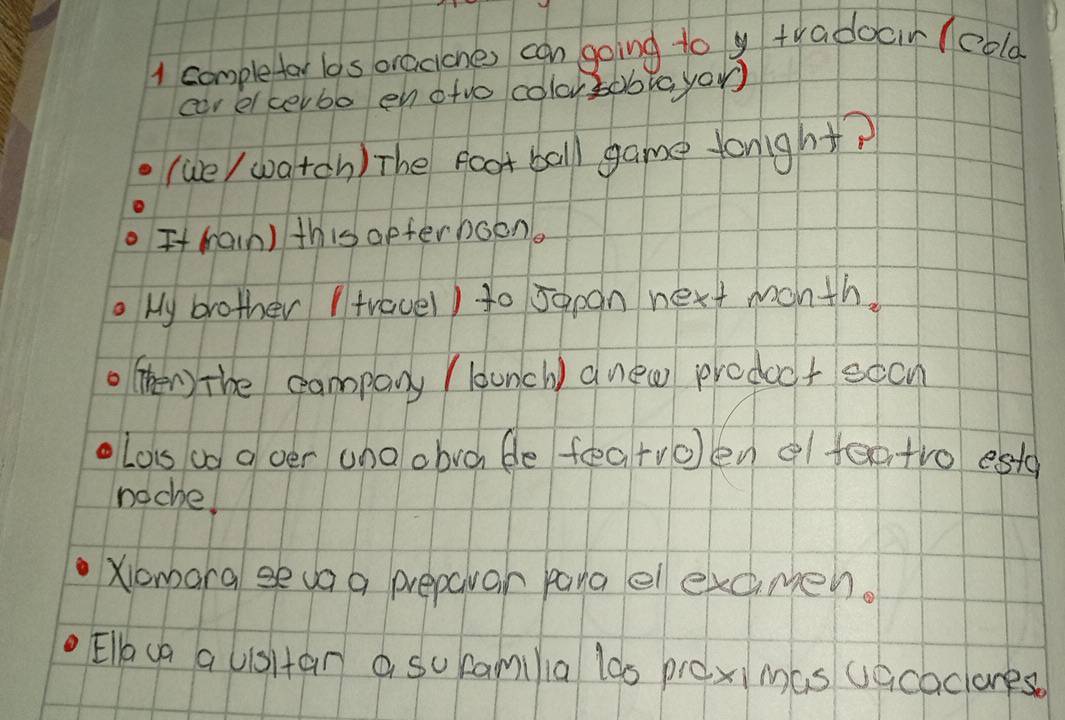 1 completar las oraciones con going to y traducir (cola
cor el verbo en otro color subrayar)
• (we/watch) The foot ball game tonight?
• It (rain) this afternoon.
• My brother (travel) to Japan next month.
• (Then) The company (launch) a new product soon
• Luis va a ver una obra (de teatro) en el teatro esta
noche.
• Xiomara se va a preparar para el examen.
• Ella va a visitar a su familia las proximas vacaciones.